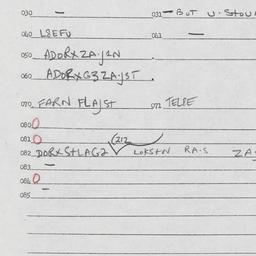 030 — 031 — BUT U. STOU
040 L8EFU 041 —
050 ADORXZA.J1N
060 ADORXG3ZA.JST .
070 FARN FLAJST 071 TELSE
080 O
081 O (212
082 DORXStLAG2 LOKStN RA.S ZA
083 —
084 O
085 —